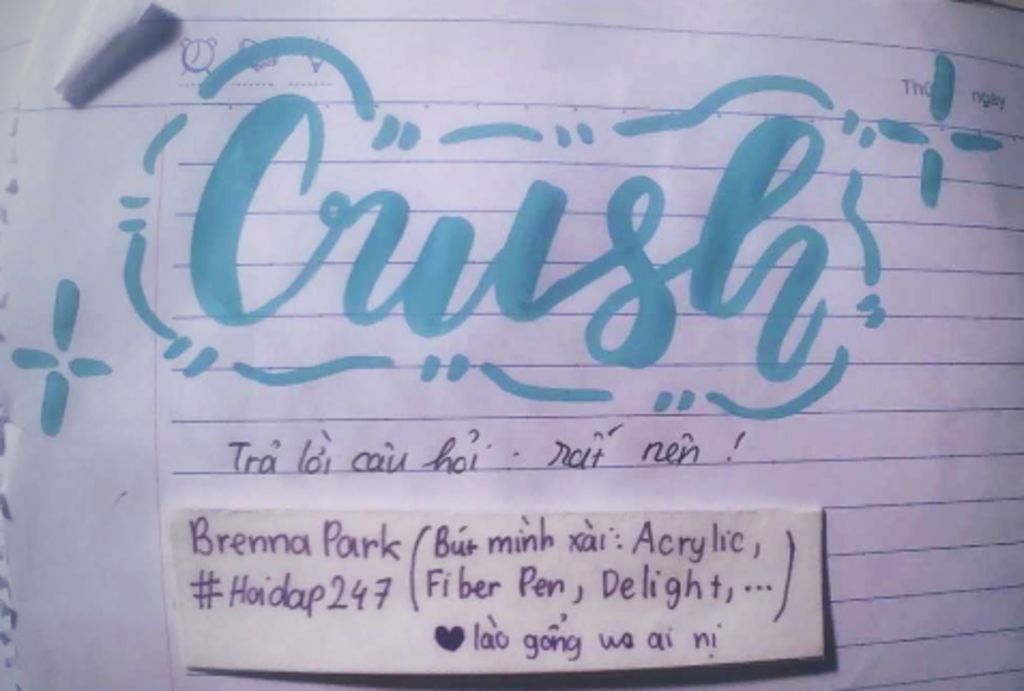 Thứ ngày
Crush
Trả lời câu hỏi : rất nên !
Brenna Park (Bút mình xài: Acrylic,
#Hoidap247 Fiber Pen, Delight, ...)
♥ lào gổng wa ai nị